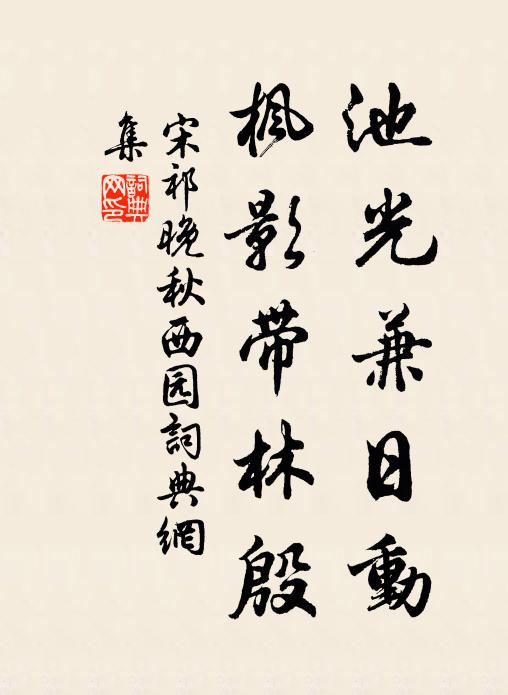 池光兼日動
楓影帶林殷
宋祁晚秋西园詞典網
集
詞典網印